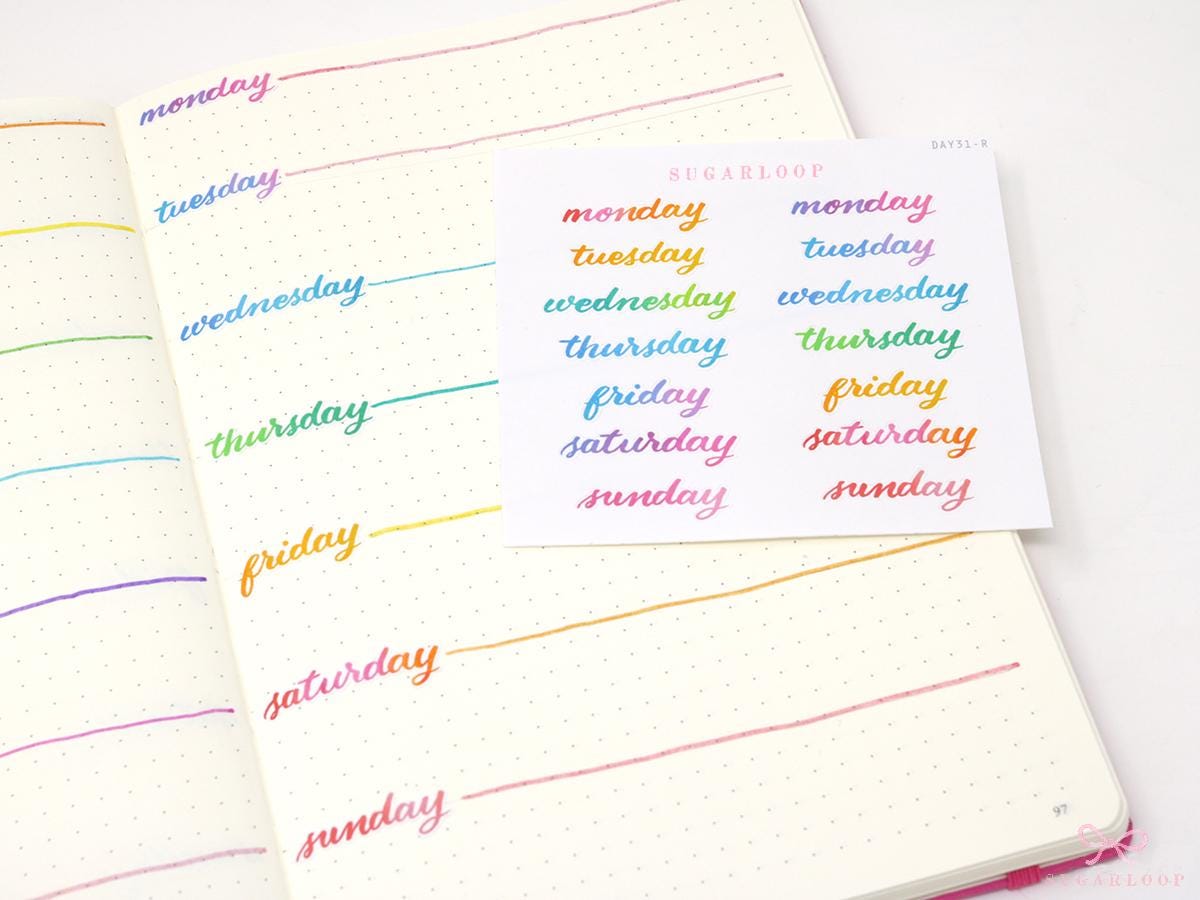 monday
tuesday
wednesday
thursday
friday
saturday
sunday
97
DAY31-R
SUGARLOOP
monday monday
tuesday tuesday
wednesday wednesday
thursday thursday
friday friday
saturday saturday
sunday sunday
SUGARLOOP